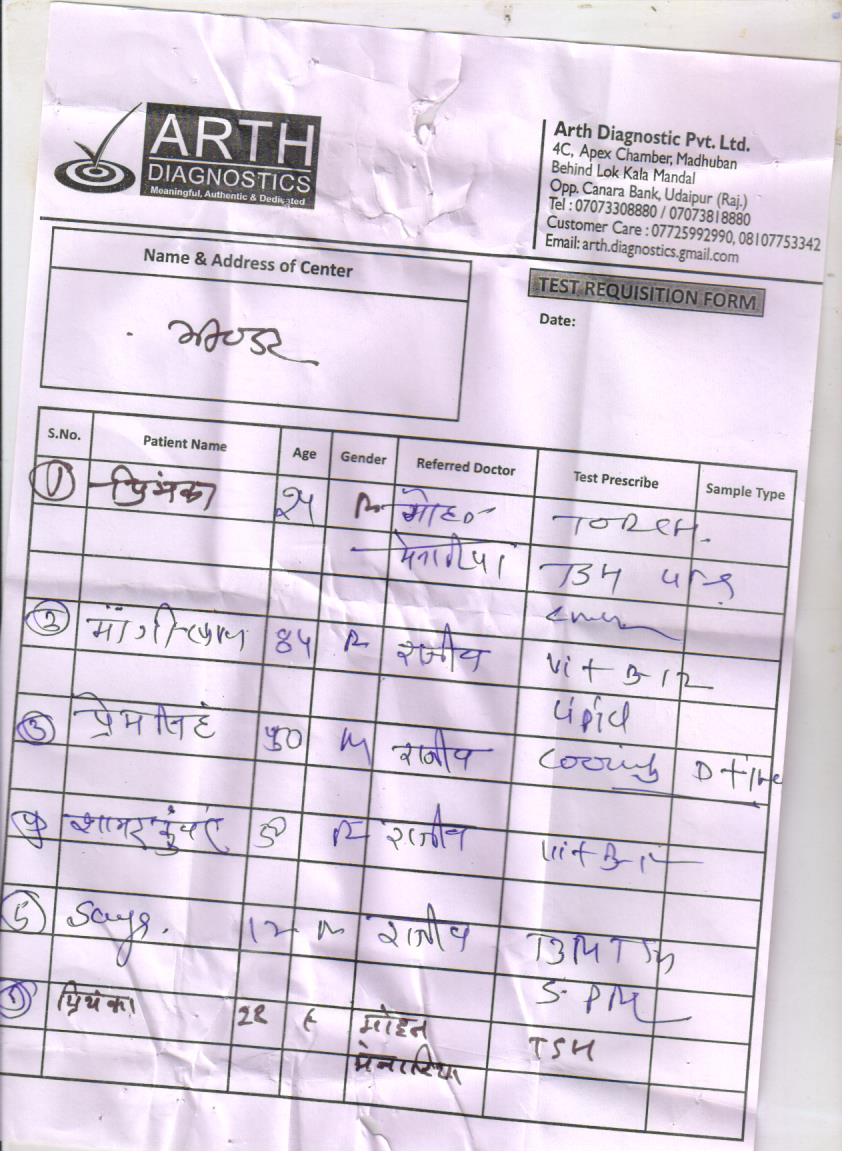 ARTH
DIAGNOSTICS
Meaningful, Authentic & Dedicated
Arth Diagnostic Pvt. Ltd.
4C, Apex Chamber, Madhuban
Behind Lok Kala Mandal
Opp. Canara Bank, Udaipur (Raj.)
Tel : 07073308880 / 07073818880
Customer Care : 07725992990, 08107753342
Email: arth.diagnostics.gmail.com
Name & Address of Center
TEST REQUISITION FORM
Date:
S.No. Patient Name Age Gender Referred Doctor Test Prescribe Sample Type
1 प्रियंका 24 मोहन TORCH.
मेनारिया TSH
2 84 राजीव Vit B-12
Lipid
3 प्रेम सिंह M राजीव
राजीव Vit B-12
5 12 M राजीव
S. PM
प्रियंका 22 F मोहन TSH
मेनारिया